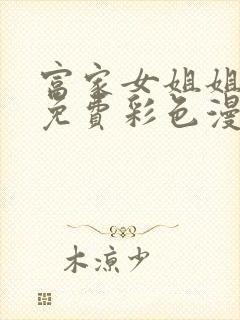 富家女姐姐
免費彩色漫
木凉少